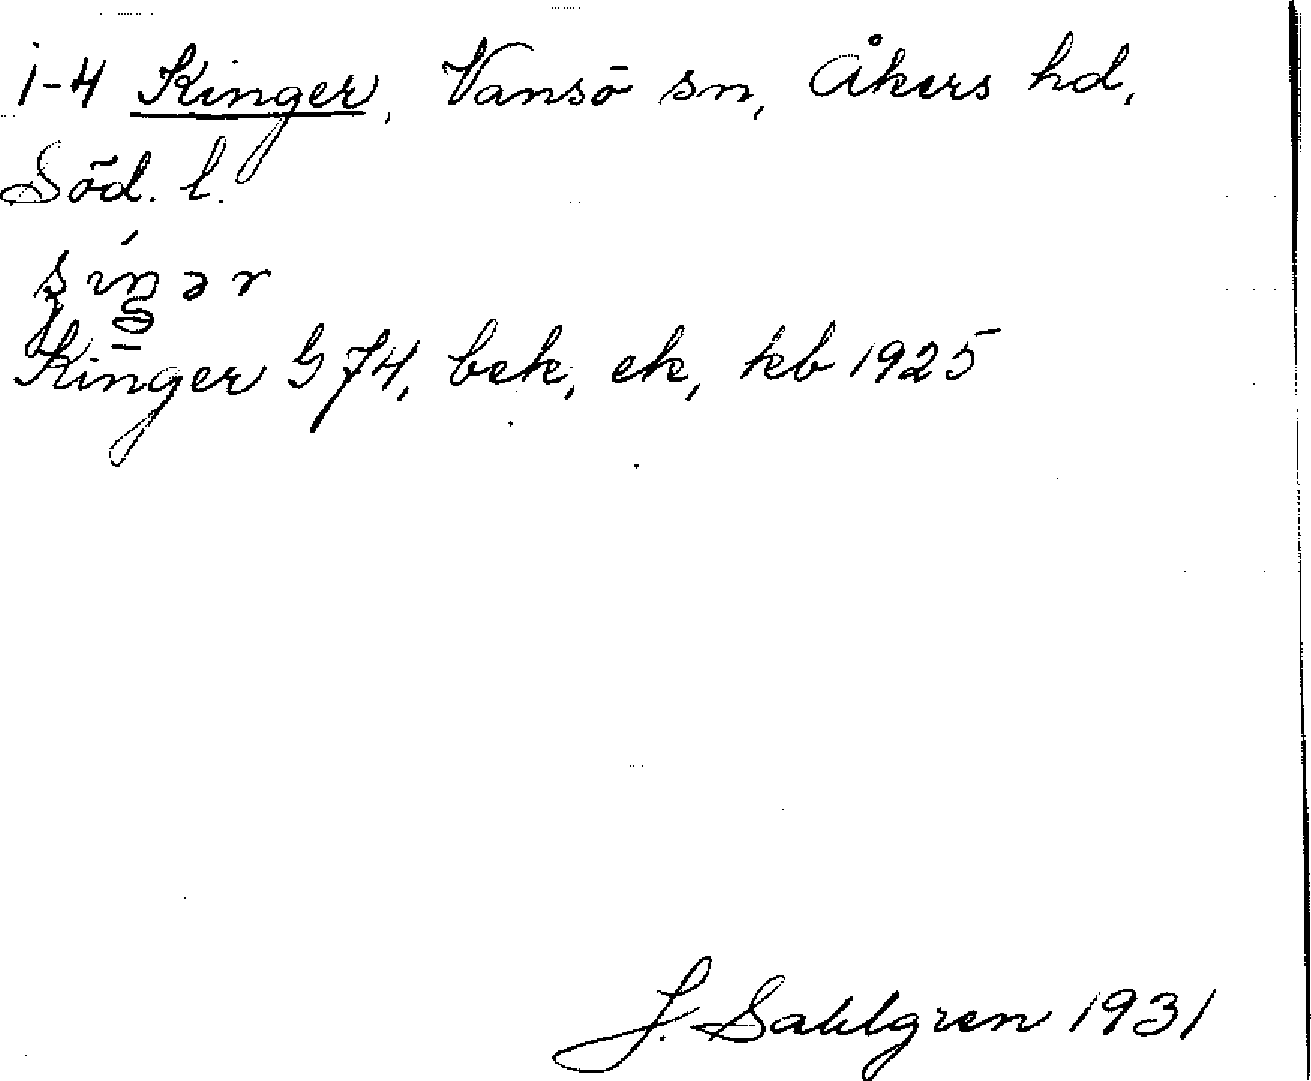 1-4 Kinger, Vansö sn, Åkers hd,
Söd. l.
Kinger G 74, bek, ek, kb 1925
J. Sahlgren 1931